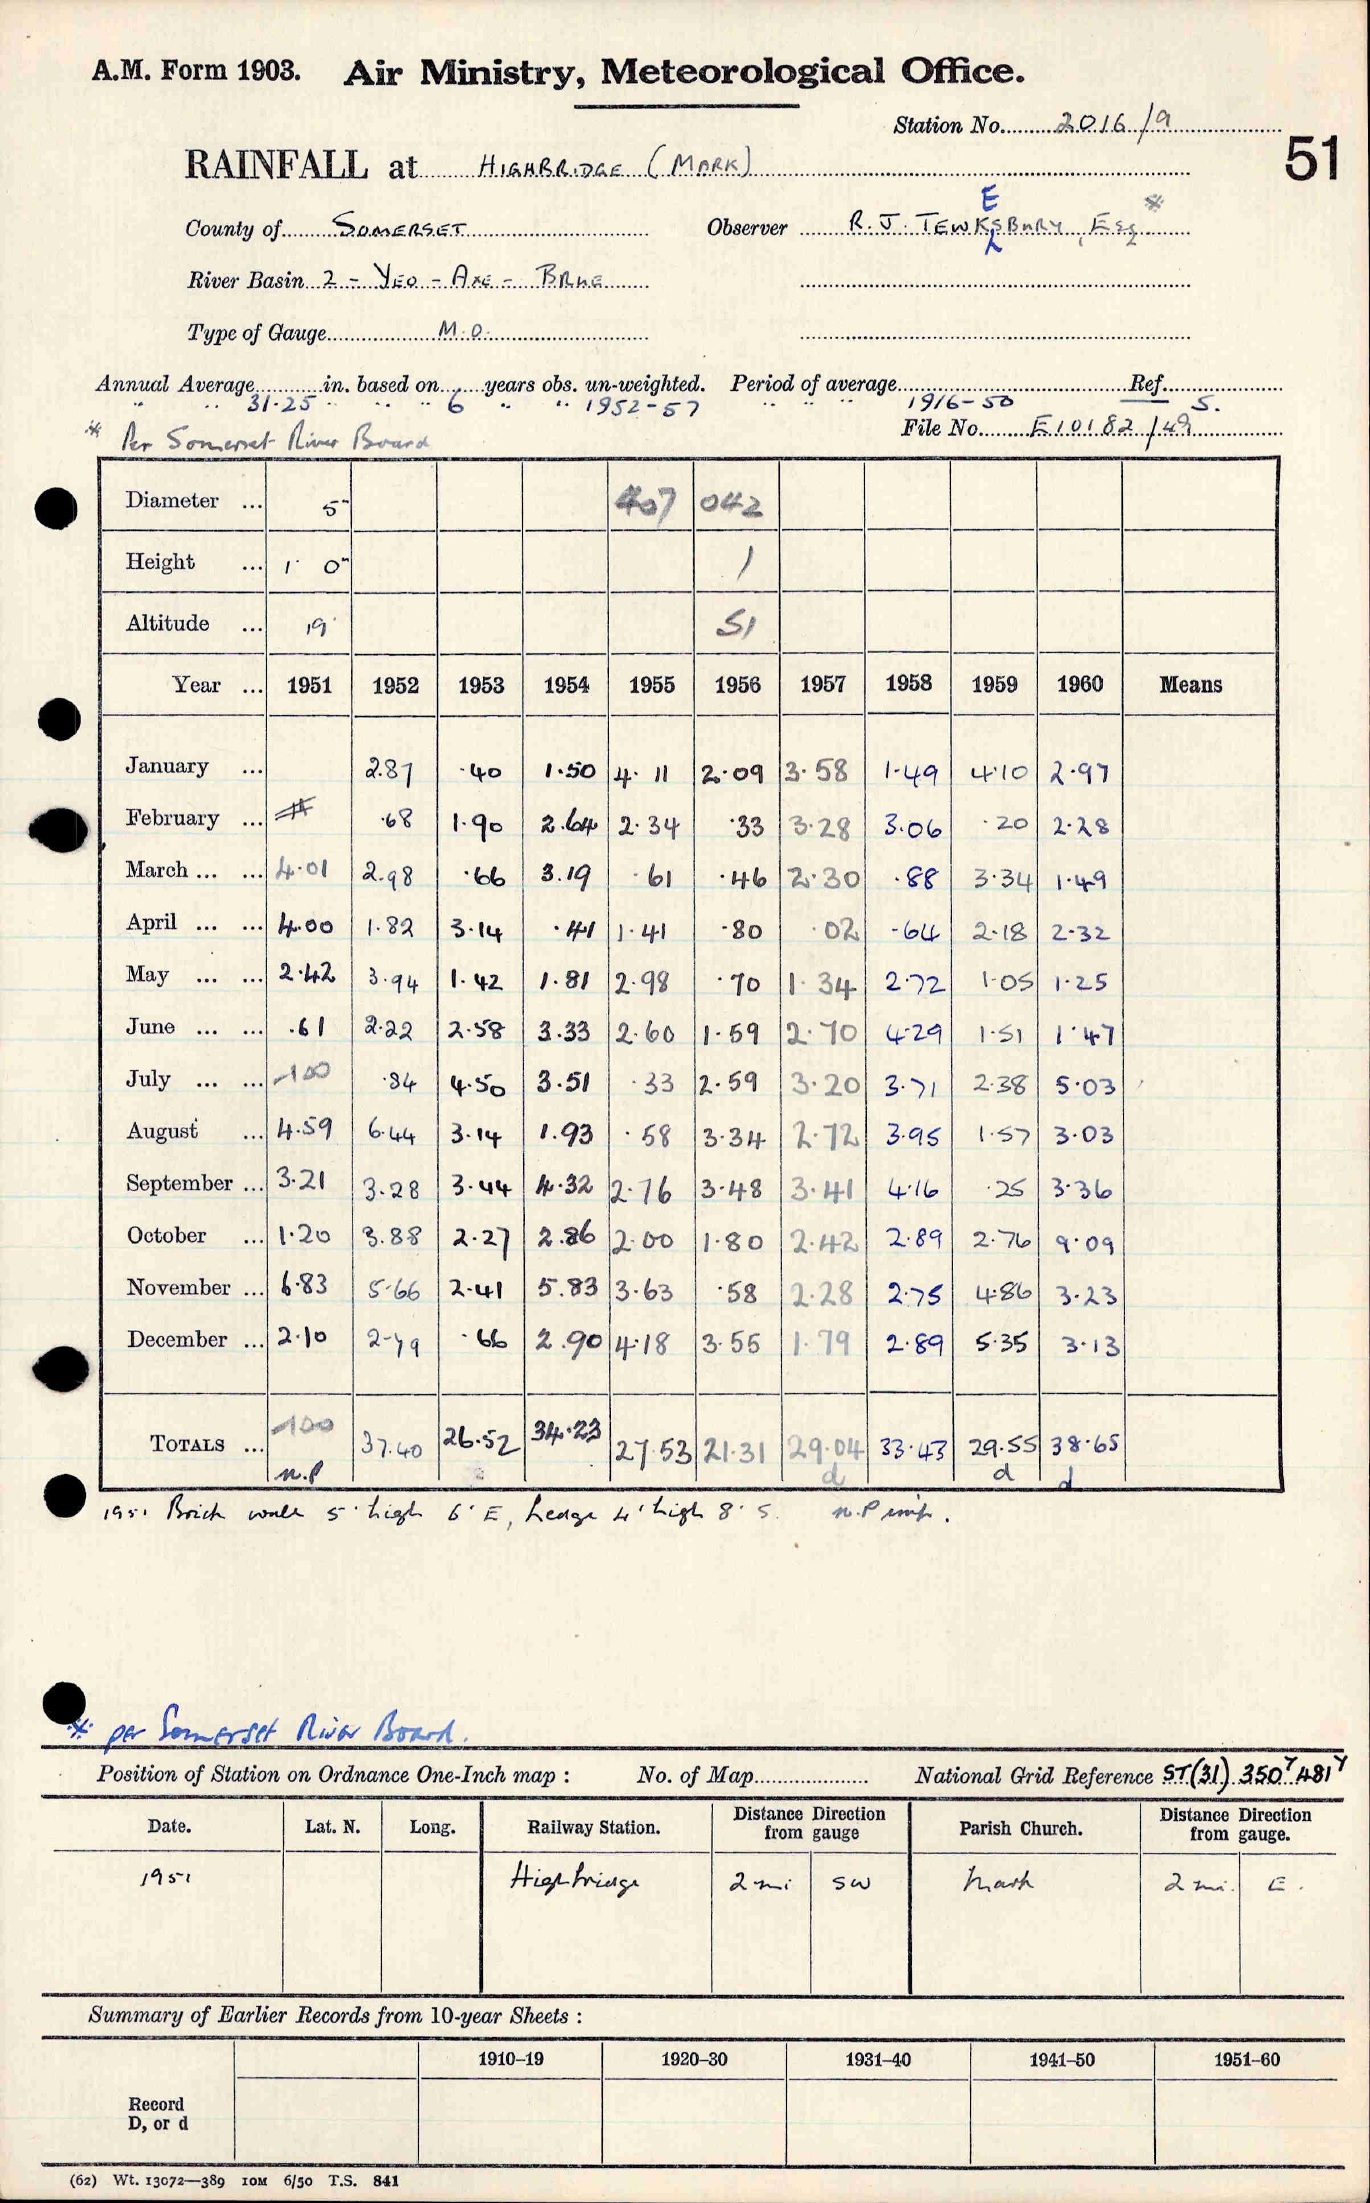 A.M. Form 1903. Air Ministry, Meteorological Office.
Station No. 2016/9
51
RAINFALL at HIGHBRIDGE (MARK)
County of SOMERSET Observer R. J. TEWKSBURY, Esq *
E
River Basin 2 - YEO - AXE - BRUE
Type of Gauge M.O.
Annual Average in. based on years obs. un-weighted. Period of average Ref.
" " 31.25 " " " 6 " " 1952-57 " " " 1916-50 S.
File No. E10182/49
* Per Somerset River Board
Diameter ... 5" 407 042
Height ... 1' 0" 1
Altitude ... 19' 51
Year ... 1951 1952 1953 1954 1955 1956 1957 1958 1959 1960 Means
January ... 2.87 .40 1.50 4.11 2.09 3.58 1.49 4.10 2.97
February ... .68 1.90 2.64 2.34 .33 3.28 3.06 .20 2.28
March ... ... 4.01 2.98 .66 3.19 .61 .46 2.30 .88 3.34 1.49
April ... ... 4.00 1.82 3.14 .41 1.41 .80 .02 .64 2.18 2.32
May ... ... 2.42 3.94 1.42 1.81 2.98 .70 1.34 2.72 1.05 1.25
June ... ... .61 2.22 2.58 3.33 2.60 1.59 2.70 4.29 1.51 1.47
July ... ... -100 .84 4.50 3.51 .33 2.59 3.20 3.71 2.38 5.03
August ... 4.59 6.44 3.14 1.93 .58 3.34 2.72 3.95 1.57 3.03
September ... 3.21 3.28 3.44 4.32 2.76 3.48 3.41 4.16 .25 3.36
October ... 1.20 3.88 2.27 2.86 2.00 1.80 2.42 2.89 2.76 9.09
November ... 6.83 5.66 2.41 5.83 3.63 .58 2.28 2.75 4.86 3.23
December ... 2.10 2.79 .66 2.90 4.18 3.55 1.79 2.89 5.35 3.13
TOTALS ... -100 37.40 26.52 34.23 27.53 21.31 29.04 33.43 29.55 38.65
n.P d d d
1951 Brick wall 5' high 6' E, hedge 4' high 8' S. n.P imp.
* per Somerset River Board.
Position of Station on Ordnance One-Inch map : No. of Map National Grid Reference ST(31) 350Y481Y
Date. Lat. N. Long. Railway Station. Distance Direction from gauge Parish Church. Distance Direction from gauge.
1951 Highbridge 2 mi SW Mark 2 mi. E.
Summary of Earlier Records from 10-year Sheets :
1910–19 1920–30 1931–40 1941–50 1951–60
Record
D, or d
(62) Wt. 13072—389 10M 6/50 T.S. 841